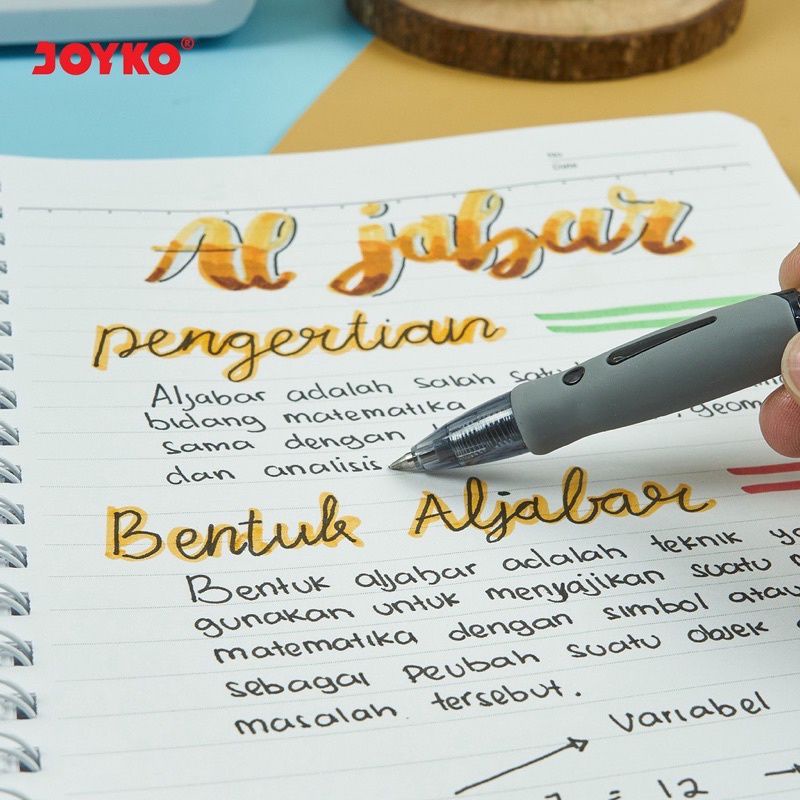 JOYKO®
No.
Date
Al jabar
pengertian
Aljabar adalah salah satu
bidang matematika
sama dengan , geom
dan analisis
Bentuk Aljabar
Bentuk aljabar adalah teknik
gunakan untuk menyajikan suatu
matematika dengan simbol atau
sebagai Peubah suatu objek
masalah tersebut.
Variabel
= 12